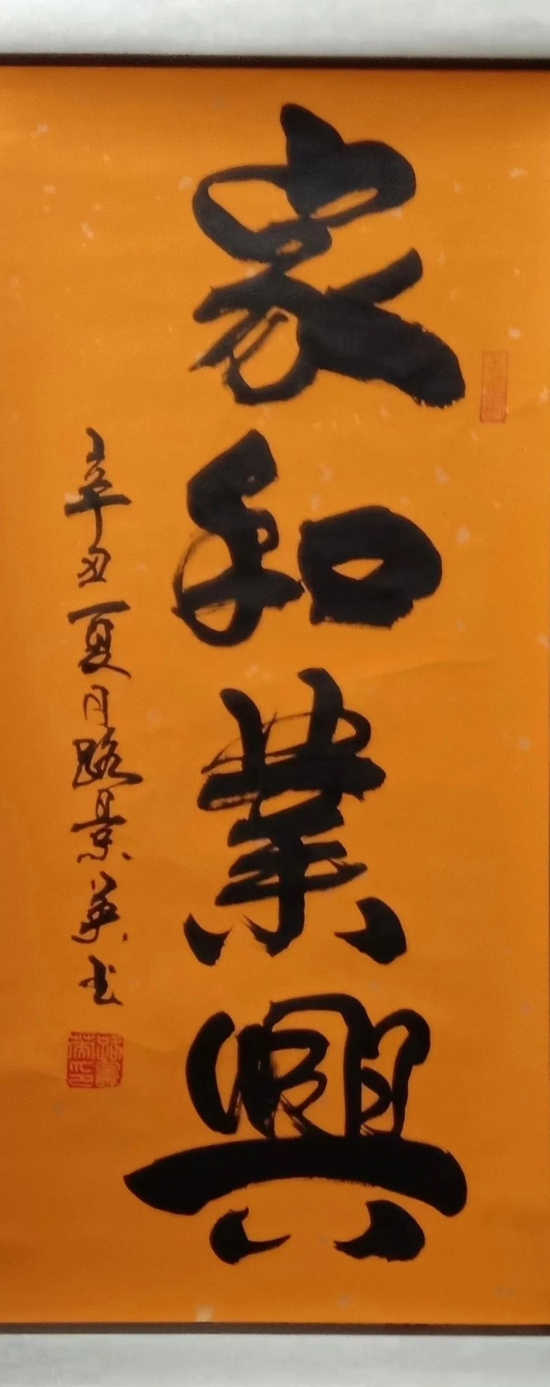 家和業興
辛丑夏月路景英书